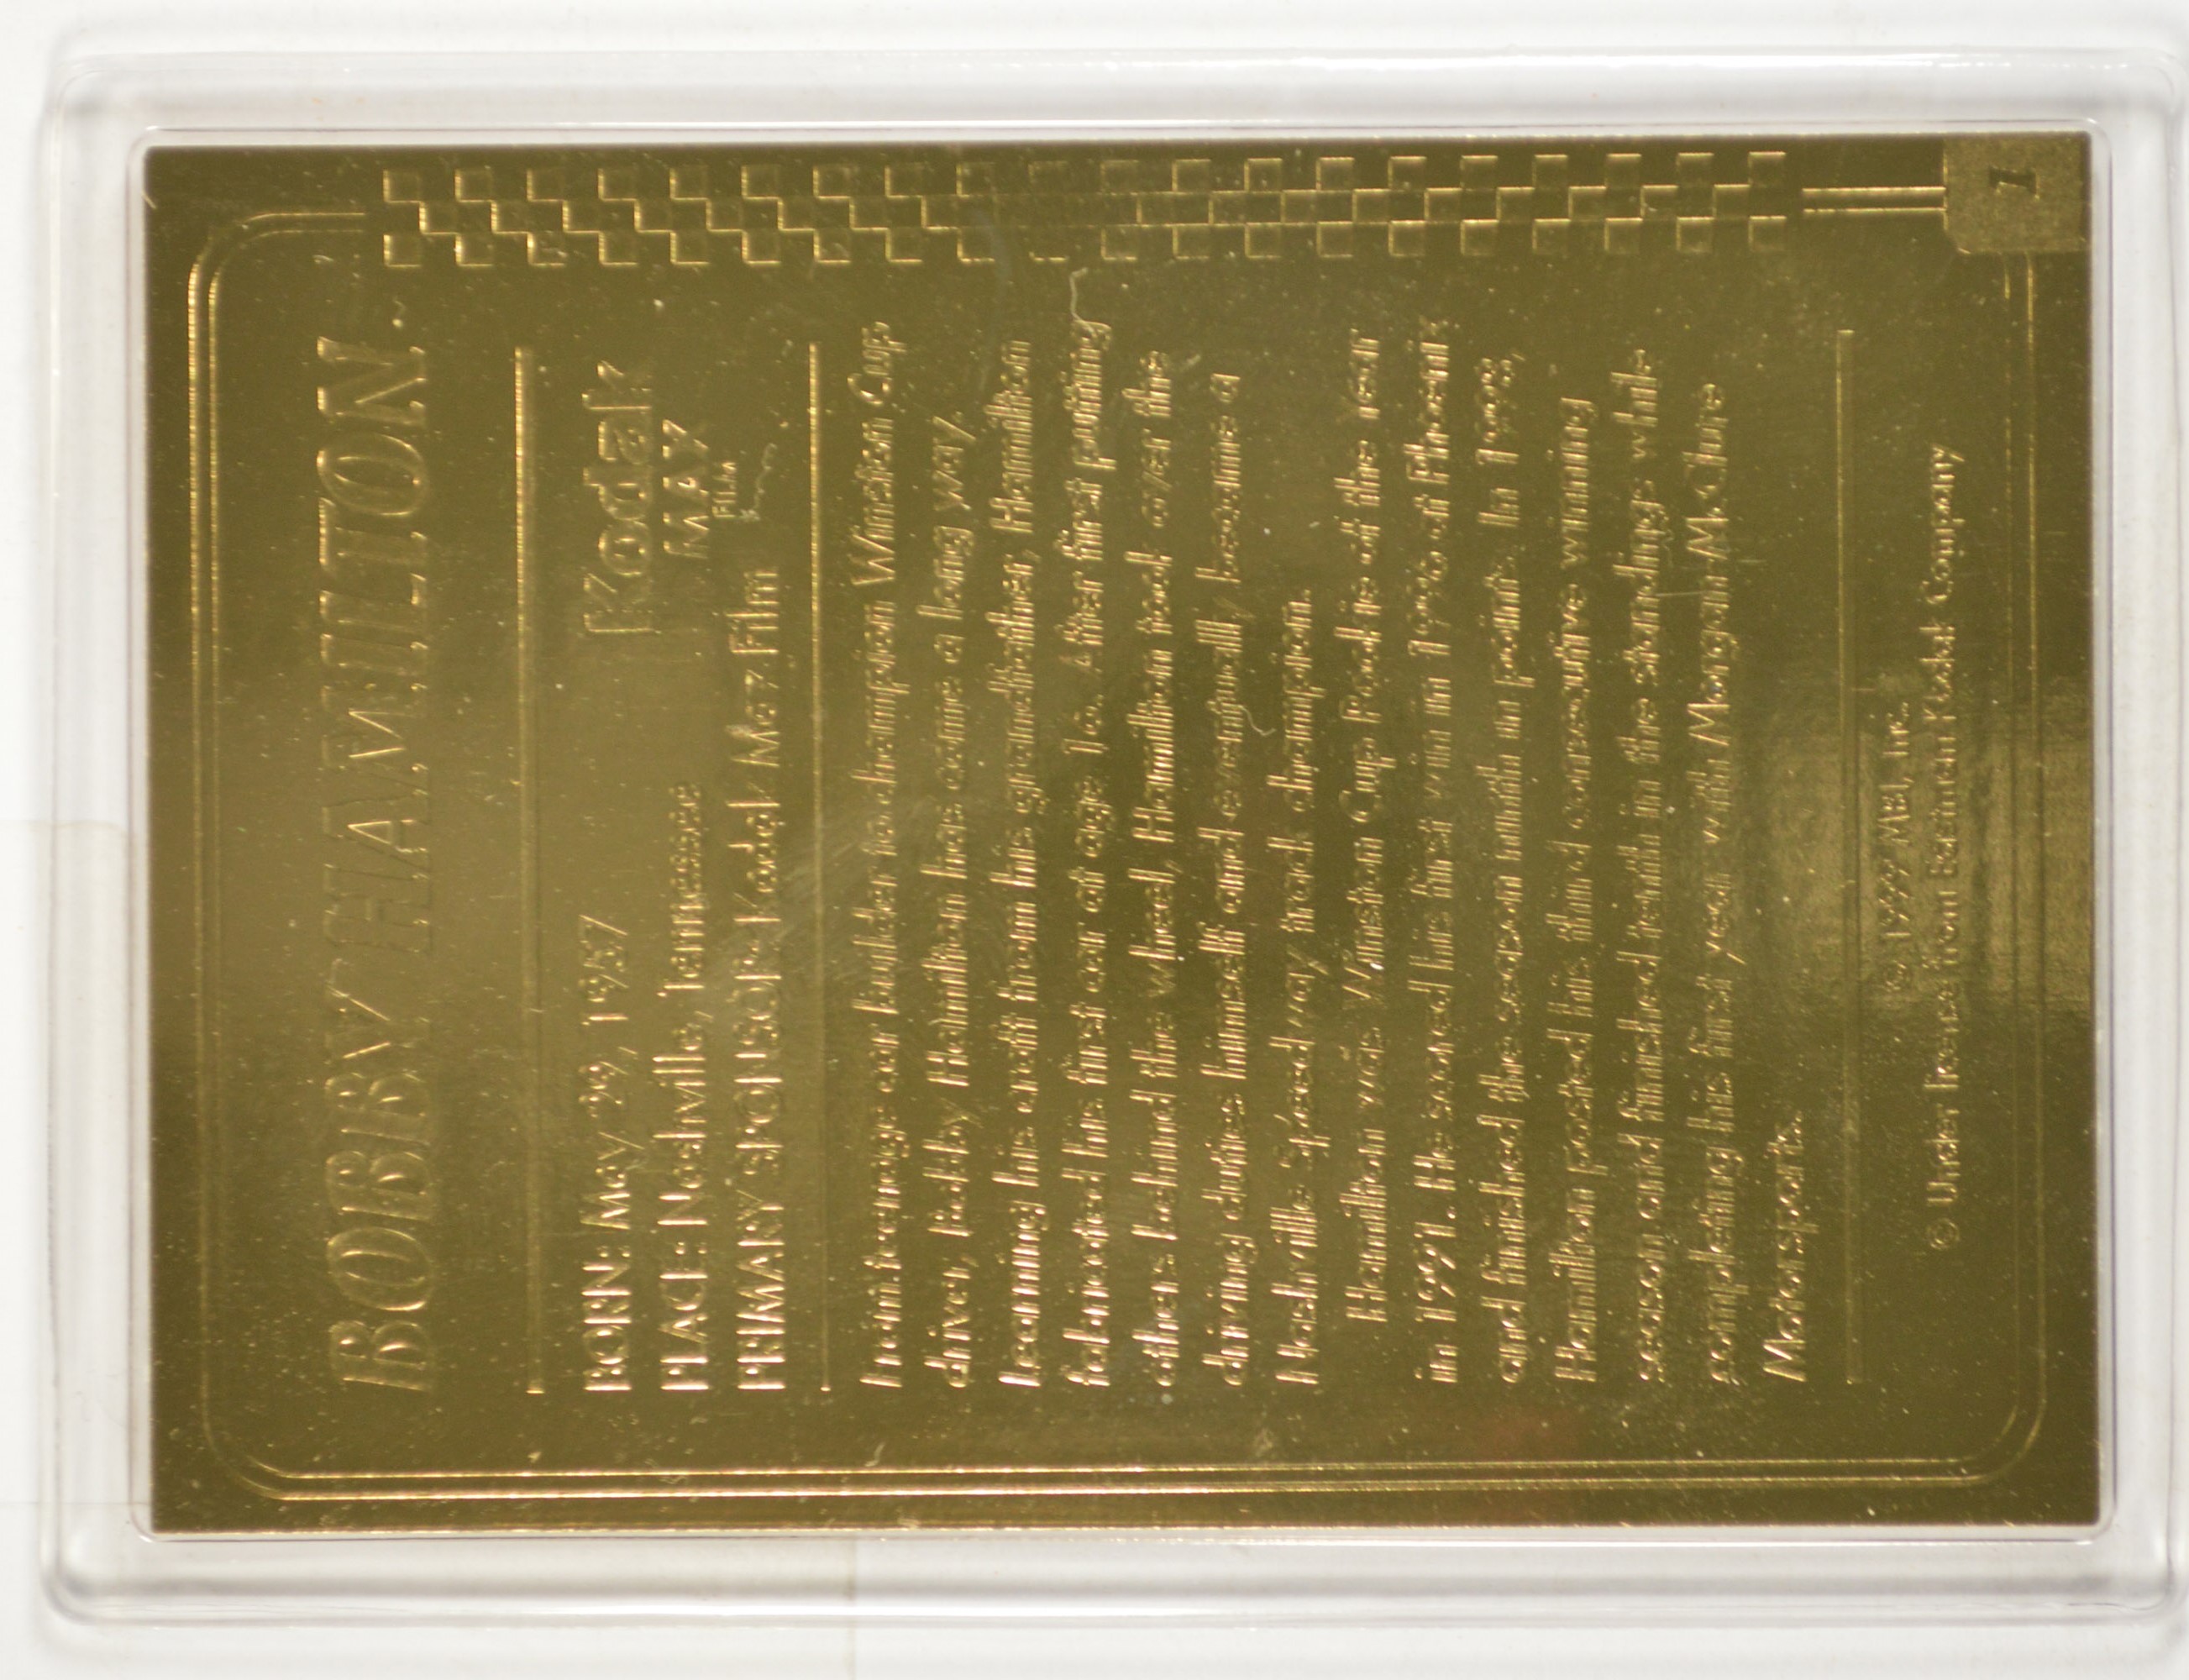 BOBBY HAMILTON
Kodak
MAX
FILM
BORN: May 29, 1957
PLACE: Nashville, Tennessee
PRIMARY SPONSOR: Kodak Max Film
From teenage car builder to champion Winston Cup
driver, Bobby Hamilton has come a long way.
Learning his craft from his grandfather, Hamilton
fabricated his first car at age 16. After first putting
others behind the wheel, Hamilton took over the
driving duties himself and eventually became a
Nashville Speedway track champion.
Hamilton was Winston Cup Rookie of the Year
in 1991. He scored his first win in 1996 at Phoenix
and finished the season ninth in points. In 1998,
Hamilton posted his third consecutive winning
season and finished tenth in the standings while
completing his first year with Morgan-McClure
Motorsports.
© 1999 MBI, Inc.
© Under license from Eastman Kodak Company
1